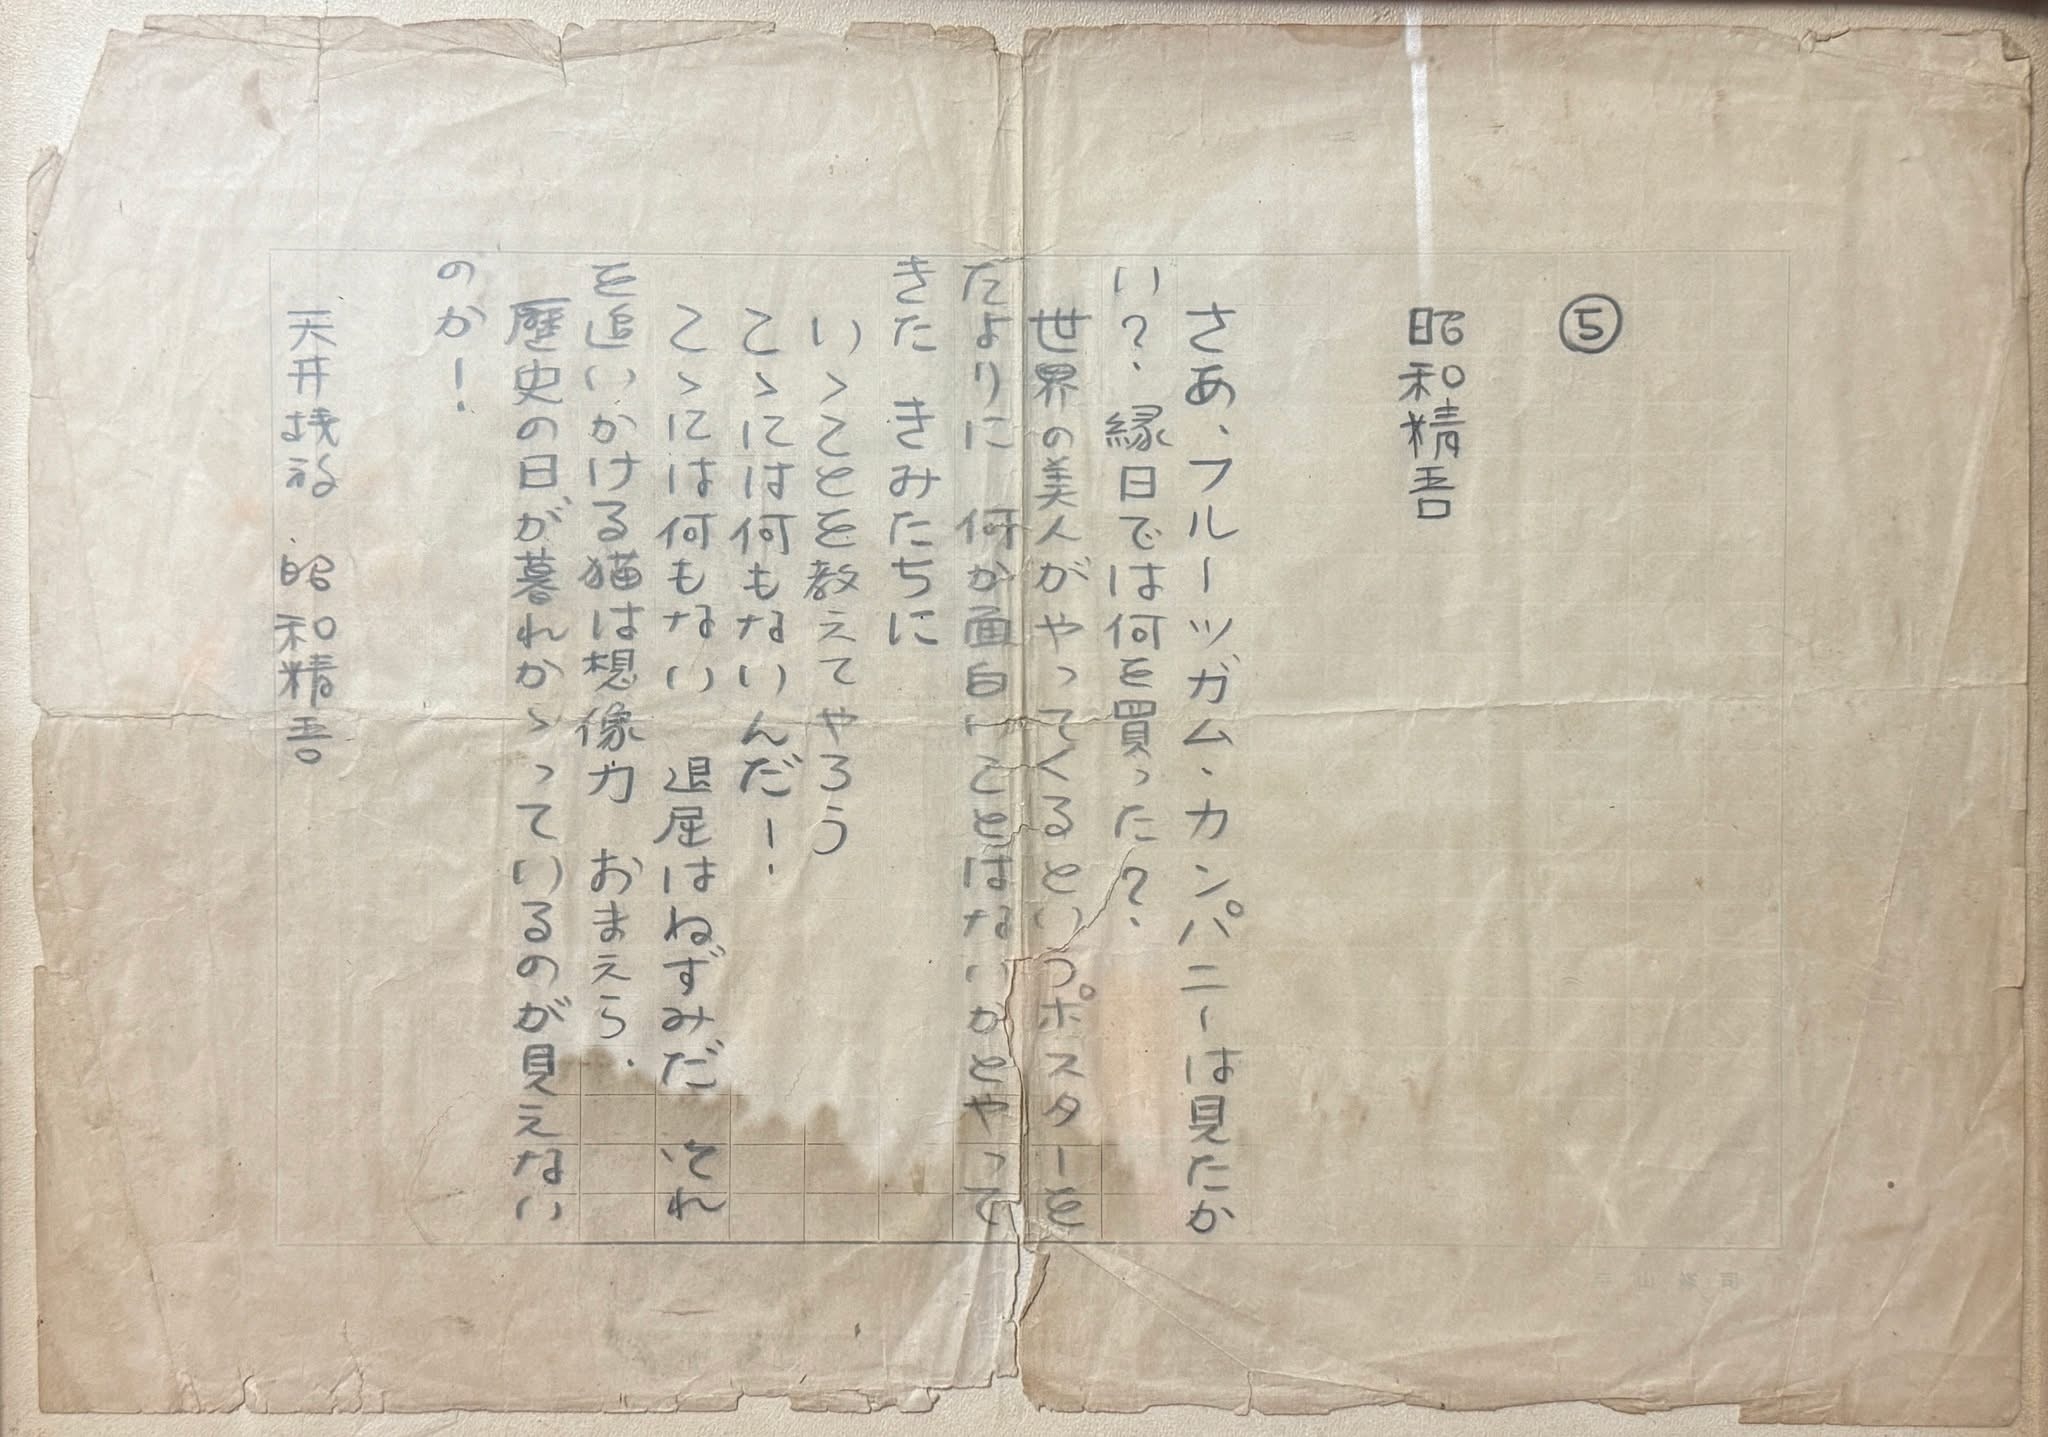 ⑤
昭和精吾
さあ、フルーツガム・カンパニーは見たか
い？、縁日では何を買った？、
世界の美人がやってくるというポスターを
たよりに 何か面白いことはないかとやって
きた きみたちに
いゝことを教えてやろう
こゝには何もないんだー！
こゝには何もない 退屈はねずみだ それ
を追いかける猫は想像力 おまえら、
歴史の日が暮れかゝっているのが見えない
のか！
天井桟敷 昭和精吾